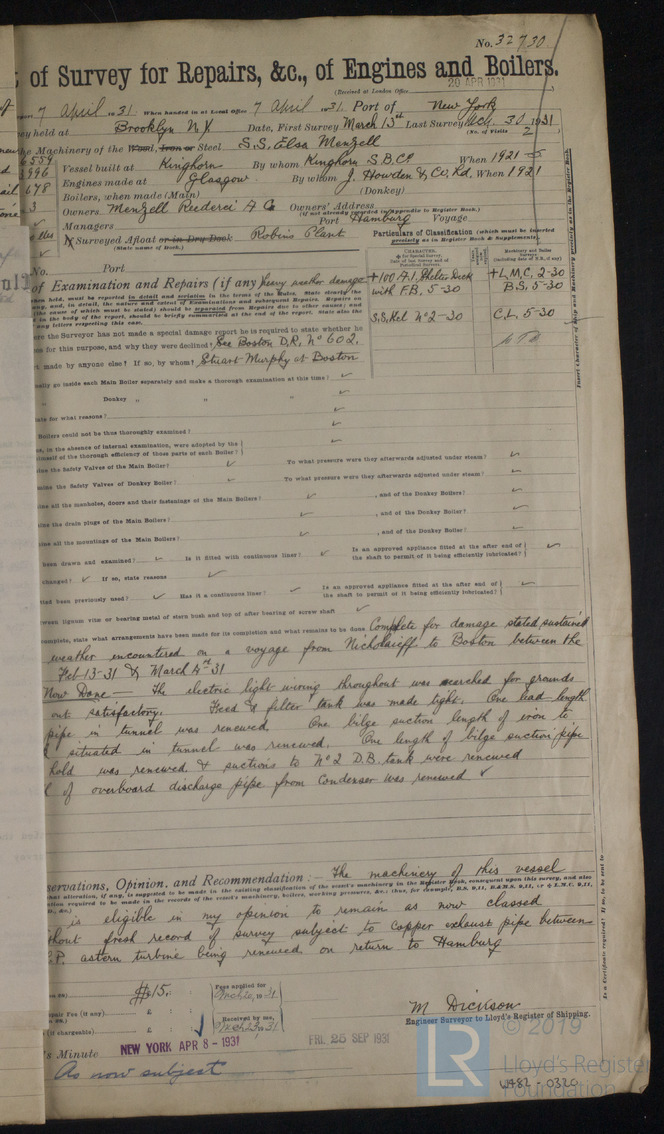 No. 32730
t of Survey for Repairs, &c., of Engines and Boilers.
(Received at London Office 20 APR 1931
7 April 1931 When handed in at Local Office 7 April 1931 Port of New York
ey held at Brooklyn N.Y. Date, First Survey March 13th Last Survey Mch. 30 1931
(No. of Visits 2
he Machinery of the Wood, Iron or Steel S.S. Elsa Menzell
6559
3996
678
3
Vessel built at Kinghorn By whom Kinghorn S.B. Co When 1921-5
Engines made at Glasgow By whom J. Howden & Co, Ltd. When 1921
Boilers, when made (Main) (Donkey)
Owners Menzell Reederei A G Owners' Address
(if not already recorded in Appendix to Register Book.)
Managers Port Hamburg Voyage
If Surveyed Afloat or in Dry Dock Robins Plant
(State name of Dock.)
Particulars of Classification (which must be inserted
precisely as in Register Book & Supplements).
+100 A.1. Shelter Deck
with F.B. 5-30
S.S. Kel No 2-30
+L.M.C. 2-30
B.S. 5-30
C.L. 5-30
No. Port
of Examination and Repairs (if any) Heavy weather damage
ere the Surveyor has not made a special damage report he is required to state whether he
for this purpose, and why they were declined? See Boston D.R. No 602.
t made by anyone else? If so, by whom? Stuart Murphy at Boston
ally go inside each Main Boiler separately and make a thorough examination at this time?
" Donkey " " "
ate for what reasons?
Boilers could not be thus thoroughly examined?
s, in the absence of internal examination, were adopted by the
himself of the thorough efficiency of those parts of each Boiler?
ine the Safety Valves of the Main Boiler? To what pressure were they afterwards adjusted under steam?
ine the Safety Valves of Donkey Boiler? To what pressure were they afterwards adjusted under steam?
ine all the manholes, doors and their fastenings of the Main Boilers? , and of the Donkey Boilers?
ine the drain plugs of the Main Boilers? , and of the Donkey Boiler?
ine all the mountings of the Main Boilers? , and of the Donkey Boiler?
been drawn and examined? Is it fitted with continuous liner? Is an approved appliance fitted at the after end of
the shaft to permit of it being efficiently lubricated?
changed? If so, state reasons
ted been previously used? Has it a continuous liner? Is an approved appliance fitted at the after end of
the shaft to permit of it being efficiently lubricated?
tween lignum vitæ or bearing metal of stern bush and top of after bearing of screw shaft
omplete, state what arrangements have been made for its completion and what remains to be done Complete for damage stated sustained
weather encountered on a voyage from Nicholaieff to Boston between the
Feb-13-31 & March 4rd 31
Now Done — The electric light wiring throughout was searched for grounds
out satisfactory. Feed & filter tank was made tight. One lead length
pipe in tunnel was renewed. One bilge suction length of iron to
situated in tunnel was renewed. One length of bilge suction pipe
hold was renewed. & suctions to No 2 D.B. tank were renewed
of overboard discharge pipe from Condenser was renewed
servations, Opinion, and Recommendation:— The machinery of this vessel
is eligible in my opinion to remain as now classed
thout fresh record of survey subject to copper exhaust pipe between
P. astern turbine being renewed on return to Hamburg
$15. Fees applied for
31
epair Fee (if any) £ : :
Received by me,
31
(if chargeable) £ : :
M Dickson
Engineer Surveyor to Lloyd's Register of Shipping.
's Minute NEW YORK APR 8 - 1931 FRI. 25 SEP 1931
As now subject
© 2019
LR
Lloyd's Register
Foundation
W482 - 0320